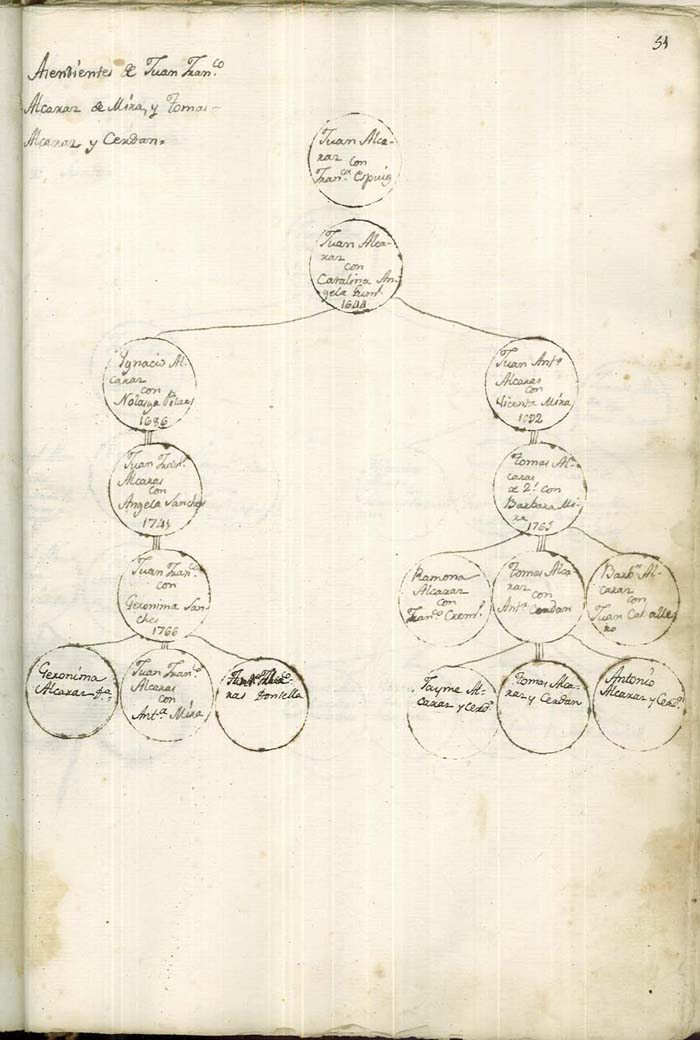 51
Asendientes de Juan Fran.co
Alcaraz de Mira, y Tomas
Alcaraz y Cerdan.
Juan Alca-
raz con
Fran.ca Espuig
Juan Alca-
raz
con
Catalina An-
gela
1644
Ygnacio Al-
caraz
con
Nolasga Pilar
1686
Juan Ant.o
Alcaras
con
Vicenta Mira
1692
Juan Fran.co
Alcaras
con
Angela Sanches
1745
Tomas Al-
caras
de 2.s con
Barbara Mi-
ra
1765
Juan Fran.co
con
Geronima San-
ches
1766
Ramona
Alcaraz
con
Fran.co
Tomas Alca-
raz
con
Ant.a Cerdan
Al-
caraz
con
Juan Caballe-
ro
Geronima
Alcaraz
Juan Fran.co
Alcaras
con
Ant.a Mira
ras Donsella
Jayme Al-
caraz y Cerd.n
Tomas Alca-
raz y Cerdan
Antonio
Alcaraz y Cerd.n